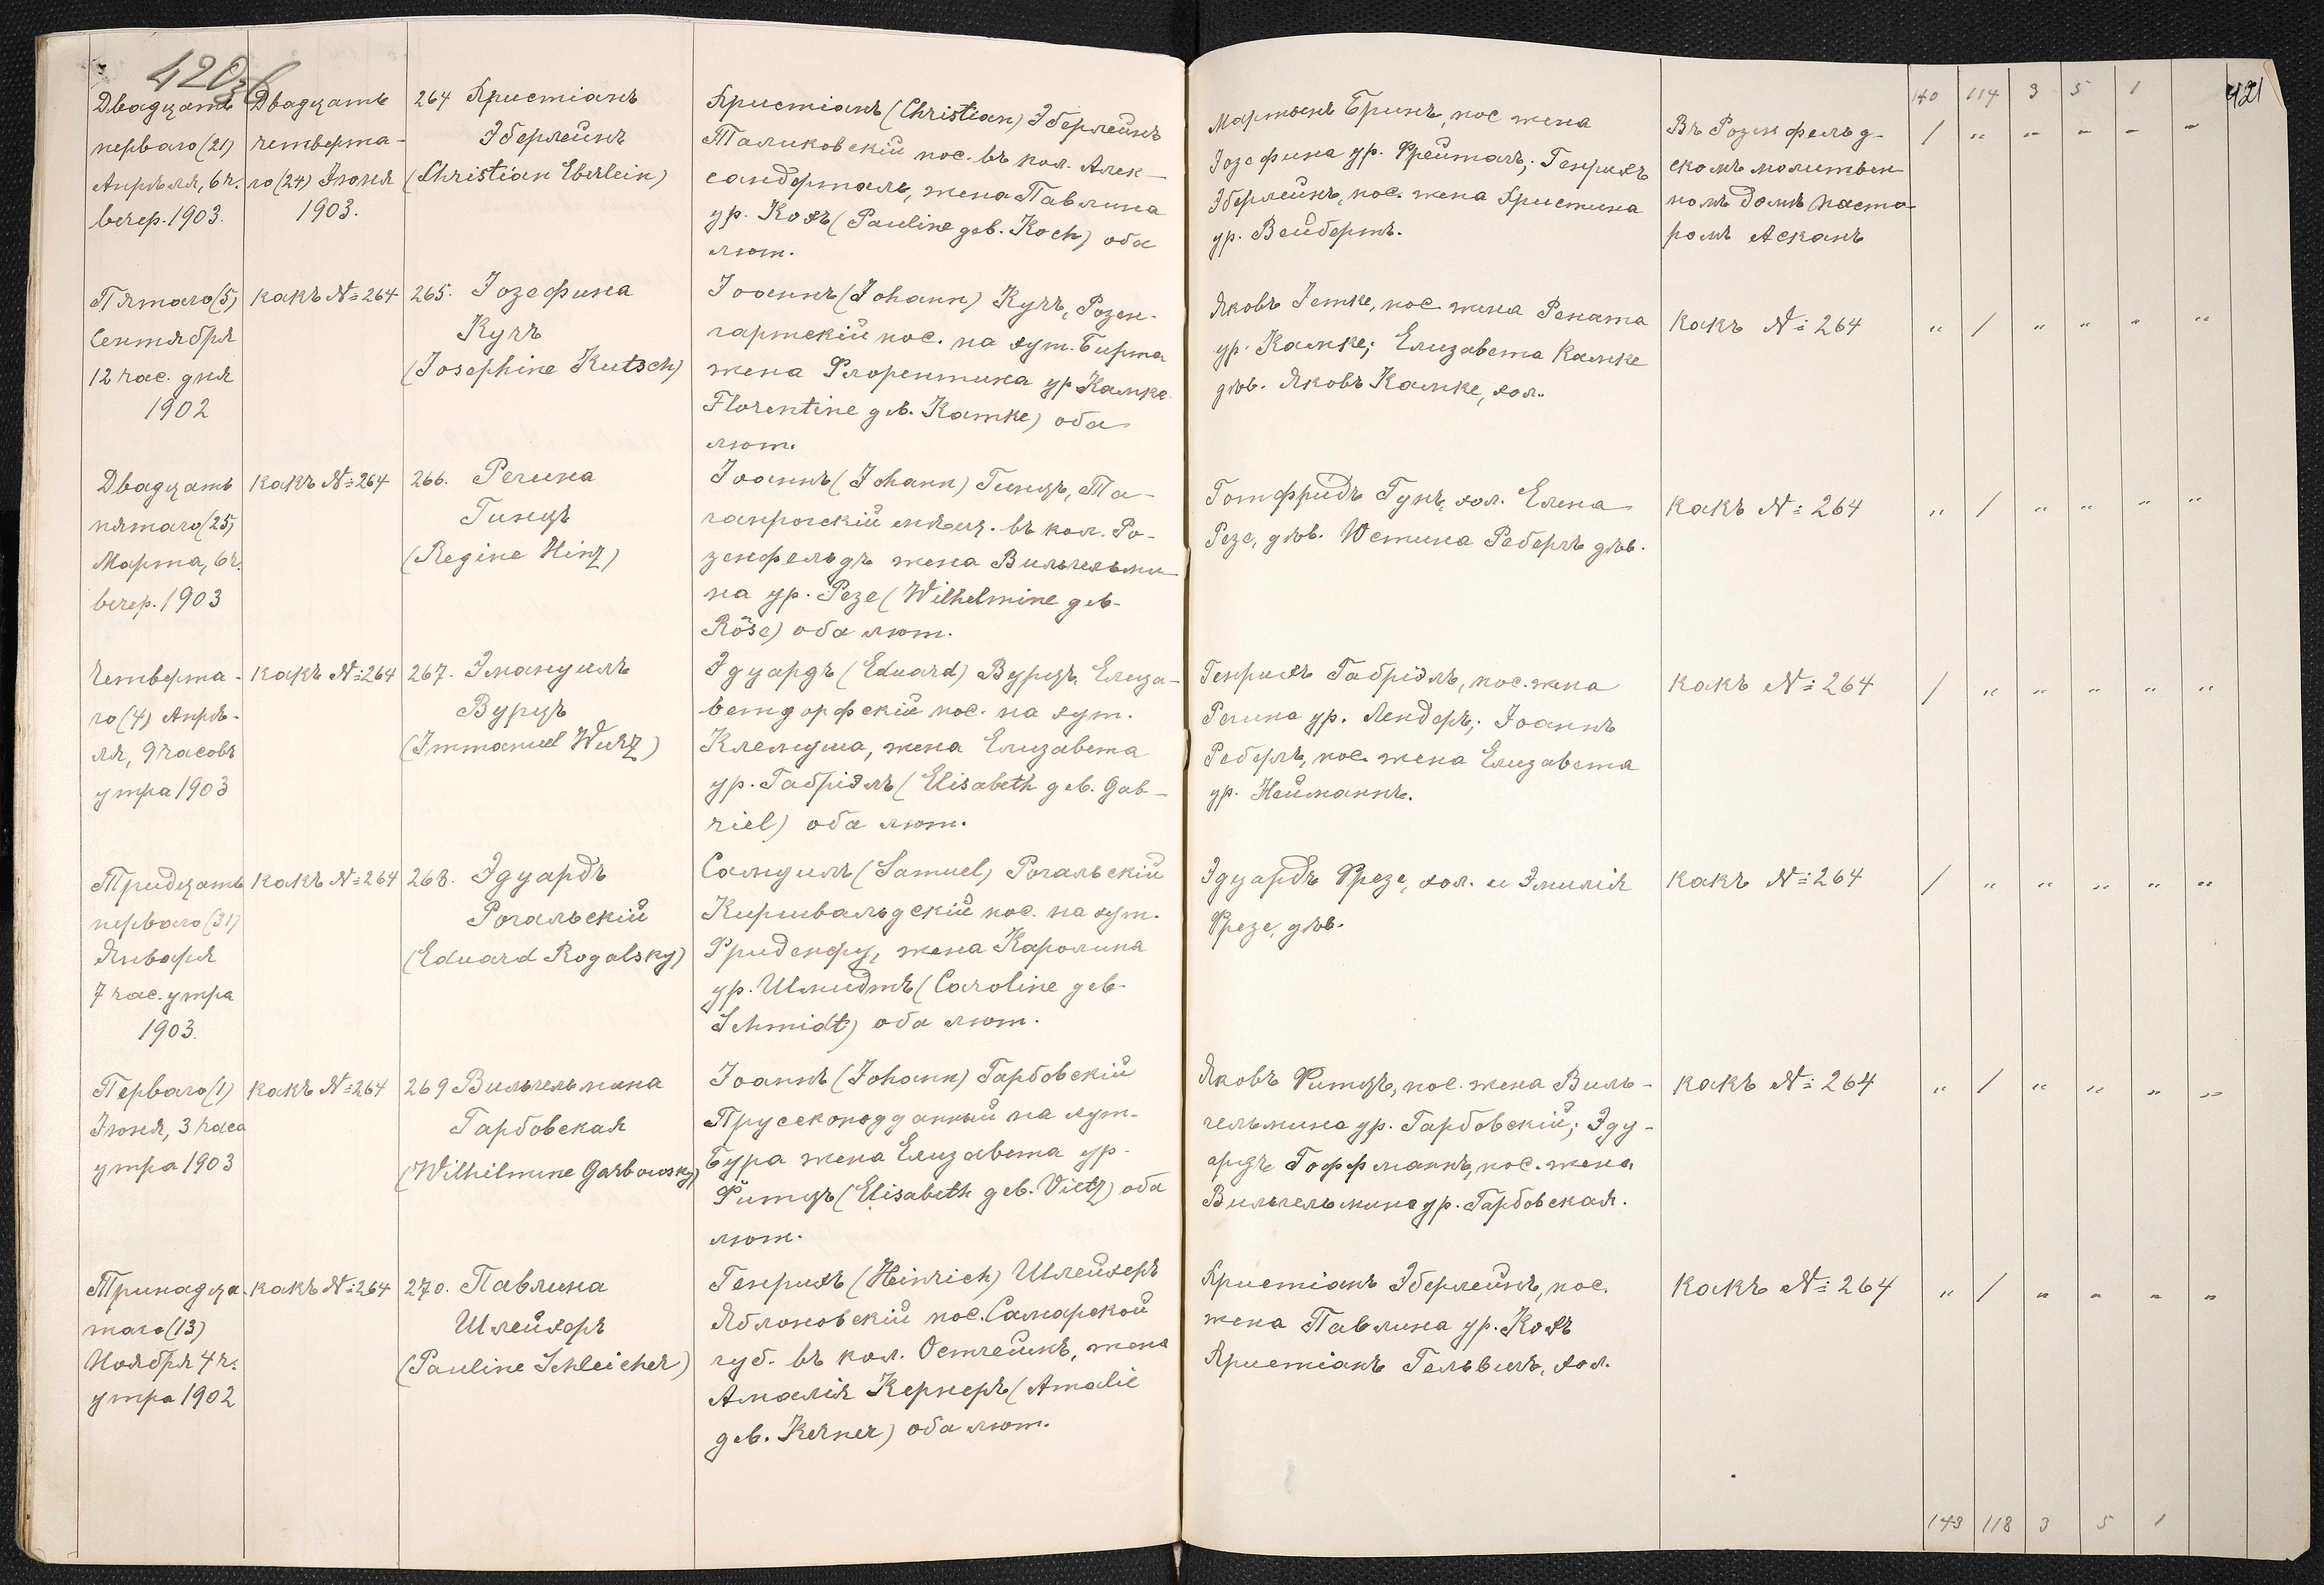 420об
421
140 114 3 5 1
Двадцать
перваго (21)
Апрѣля, 6 ч.
вечер. 1903.
Двадцать
четверта-
го (24) Іюня
1903.
264 Христіанъ
Эберлейнъ
(Christian Eberlein)
Христіанъ (Christian) Эберлейнъ
Таликовскій пос. въ кол. Алек-
сандерталь, жена Павлина
ур. Кохъ (Pauline geb. Koch) оба
лют.
Мартынъ Бринъ, пос жена
Іозефина ур. Фрейтагъ; Генрихъ
Эберлейнъ, пос. жена Христина
ур. Вейбертъ.
Въ Розенфельд-
скомъ молитвен
номъ домѣ пасто-
ромъ Асканъ
/ „ „ „ „ „
Пятаго (5)
Сентября
12 час. дня
1902
какъ № 264
265. Іозефина
Кучъ
(Josephine Kutsch)
Іоаннъ (Johann) Кучъ, Розен-
гартскій пос. на хут. Бирта
жена Флорентина ур Камке
Florentine geb. Kamke) оба
лют.
Яковъ Іетке, пос жена Рената
ур. Камке; Елизавета Камке
дѣв. Яковъ Камке, хол.
какъ № 264
„ / „ „ „ „
Двадцать
пятаго (25)
Марта, 6 ч.
вечер. 1903
какъ № 264
266. Регина
Гинцъ
(Regine Hinz)
Іоаннъ (Johann) Гинцъ, Та-
ганрогскій мѣщ. въ кол. Ро-
зенфельдъ жена Вильгельми-
на ур. Резе (Wilhelmine geb.
Röse) оба лют.
Готфридъ Гунъ, хол. Елена
Резе, дѣв. Юстина Реберъ дѣв.
какъ № 264
„ / „ „ „ „
Четверта-
го (4) Апрѣ-
ля, 9 часовъ
утра 1903
какъ № 264
267. Эмануилъ
Вурцъ
(Immanuel Wurz)
Эдуардъ (Eduard) Вурцъ, Елиза-
ветдорфскій пос. на хут.
Клемуша, жена Елизавета
ур. Габріэлъ (Elisabeth geb. Gab-
riel) оба лют.
Генрихъ Габріэлъ, пос. жена
Регина ур. Лендеръ; Іоаннъ
Реберъ, пос. жена Елизавета
ур. Нейманнъ.
какъ № 264
/ „ „ „ „ „
Тридцать
перваго (31)
Января
7 час. утра
1903.
какъ № 264
268. Эдуардъ
Рогальскій
(Eduard Rogalsky)
Самуилъ (Samuel) Рогальскій
Киршвальдскій пос. на хут.
Фриденфу, жена Каролина
ур. Шмидтъ (Caroline geb.
Schmidt) оба лют.
Эдуардъ Фрезе, хол. и Эмилія
Фрезе, дѣв.
какъ № 264
/ „ „ „ „ „
Перваго (1)
Іюня, 3 часа
утра 1903
какъ № 264
269 Вильгельмина
Гарбовская
(Wilhelmine Garbowsky)
Іоаннъ (Johann) Гарбовскій
Прусскоподданный на хут.
Бура жена Елизавета ур.
Фитцъ (Elisabeth geb. Vietz) оба
лют.
Яковъ Фитцъ, пос. жена Виль-
гельмина ур. Гарбовскій; Эду-
ардъ Гоффманнъ, пос. жена
Вильгельмина ур. Гарбовская.
какъ № 264
„ / „ „ „ „
Тринадца-
таго (13)
Ноября 4 ч.
утра 1902
какъ № 264
270. Павлина
Шлейхеръ
(Pauline Schleicher)
Генрихъ (Heinrich) Шлейхеръ
Яблоновскій пос. Самарской
губ. въ кол. Остгеймъ, жена
Амалія Кернеръ (Amalie
geb. Kerner) оба лют.
Христіанъ Эберлейнъ, пос.
жена Павлина ур. Кохъ
Христіанъ Гельвихъ, хол.
какъ № 264
„ / „ „ „ „
143 118 3 5 1